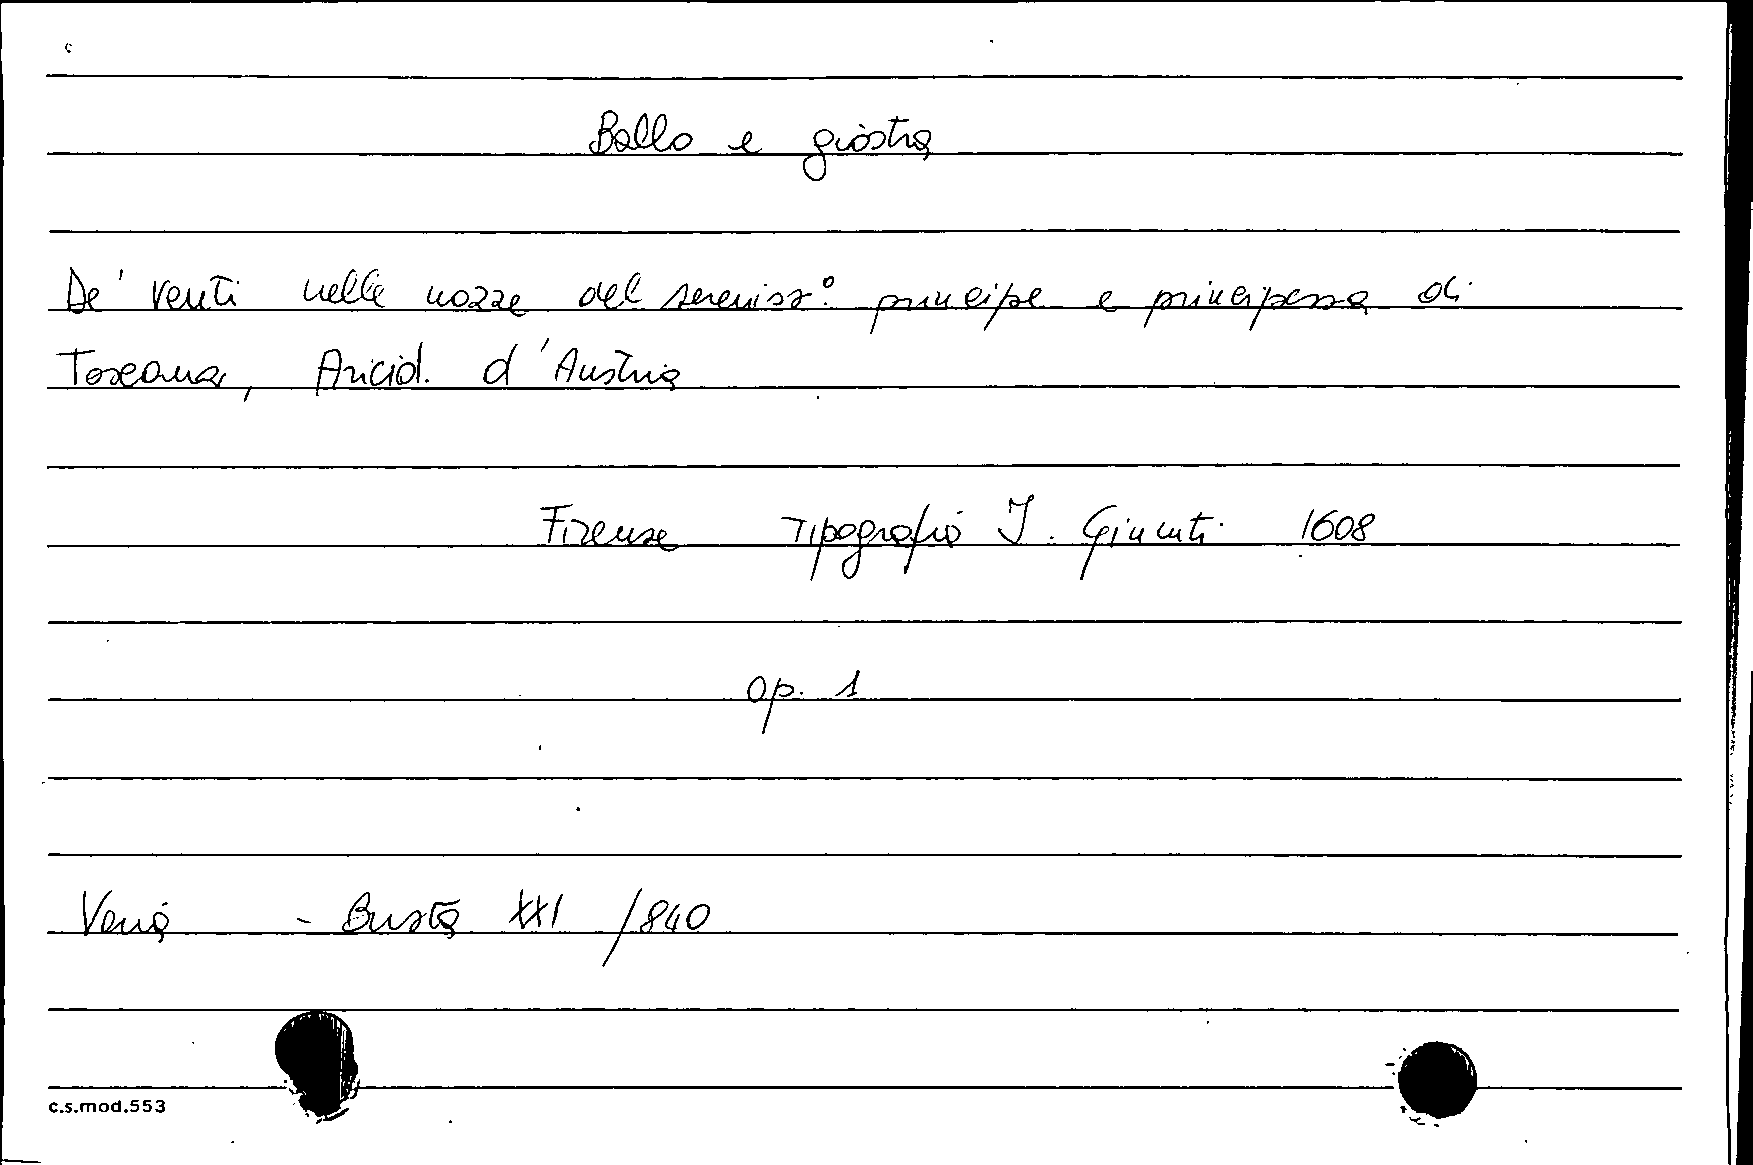 Ballo e giostra
De' Venti nelle nozze del sereniss° principe e principessa di
Toscana, Aricid. d'Austria
Firenze Tipografia I. Giunti 1608
Op. 1
Varia - Busta XXI /840
c.s.mod.553